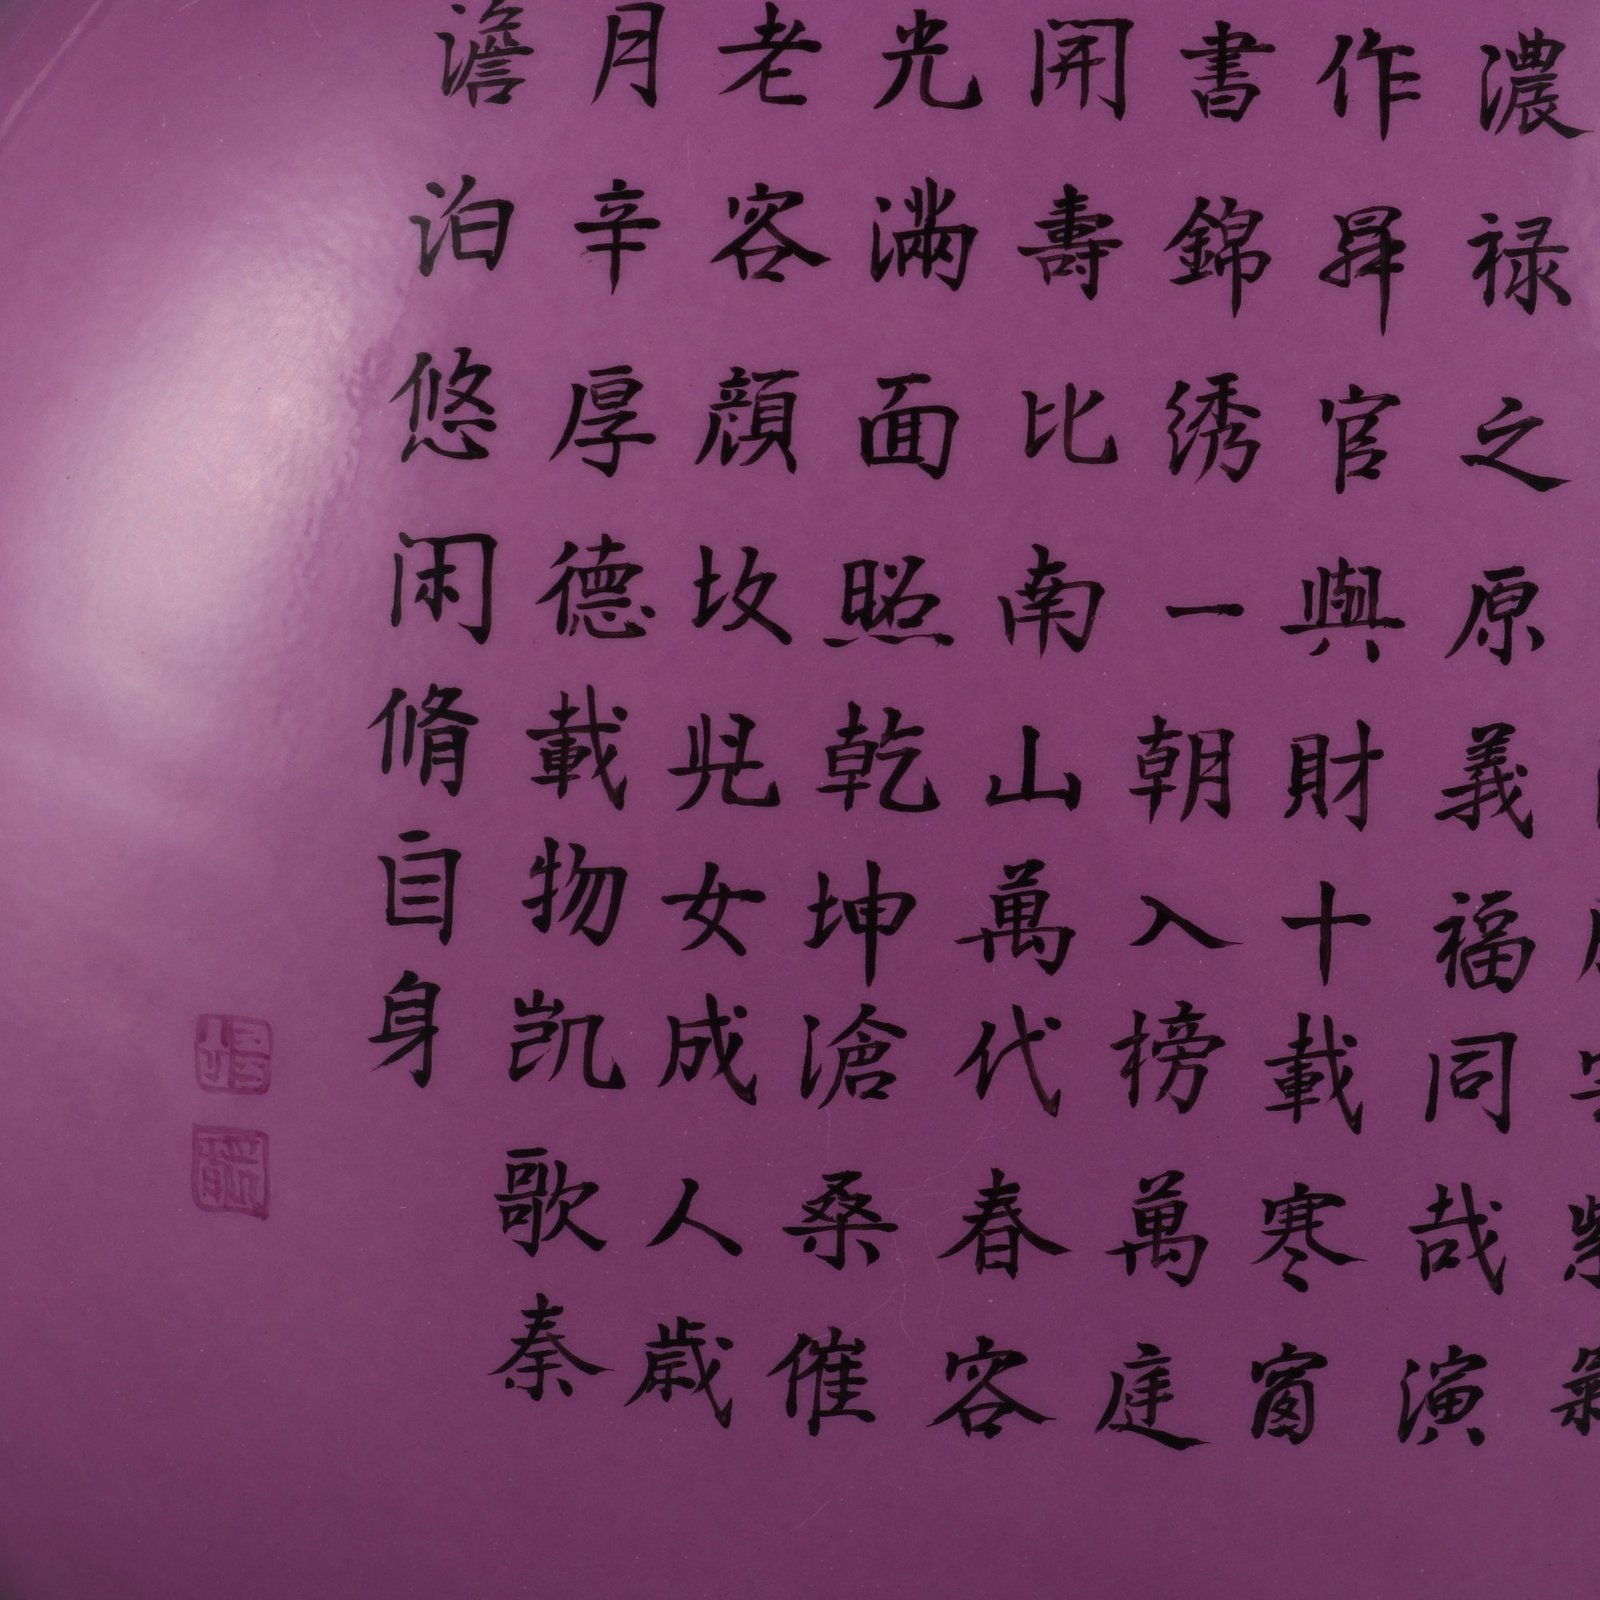 濃禄之原義福同哉演
作昇官與財十載寒窗
書錦绣一朝入榜萬庭
開壽比南山萬代春容
光滿面照乾坤滄桑催
老容顔女成人歲
月辛厚德載物凯歌秦
澹泊悠闲脩自身